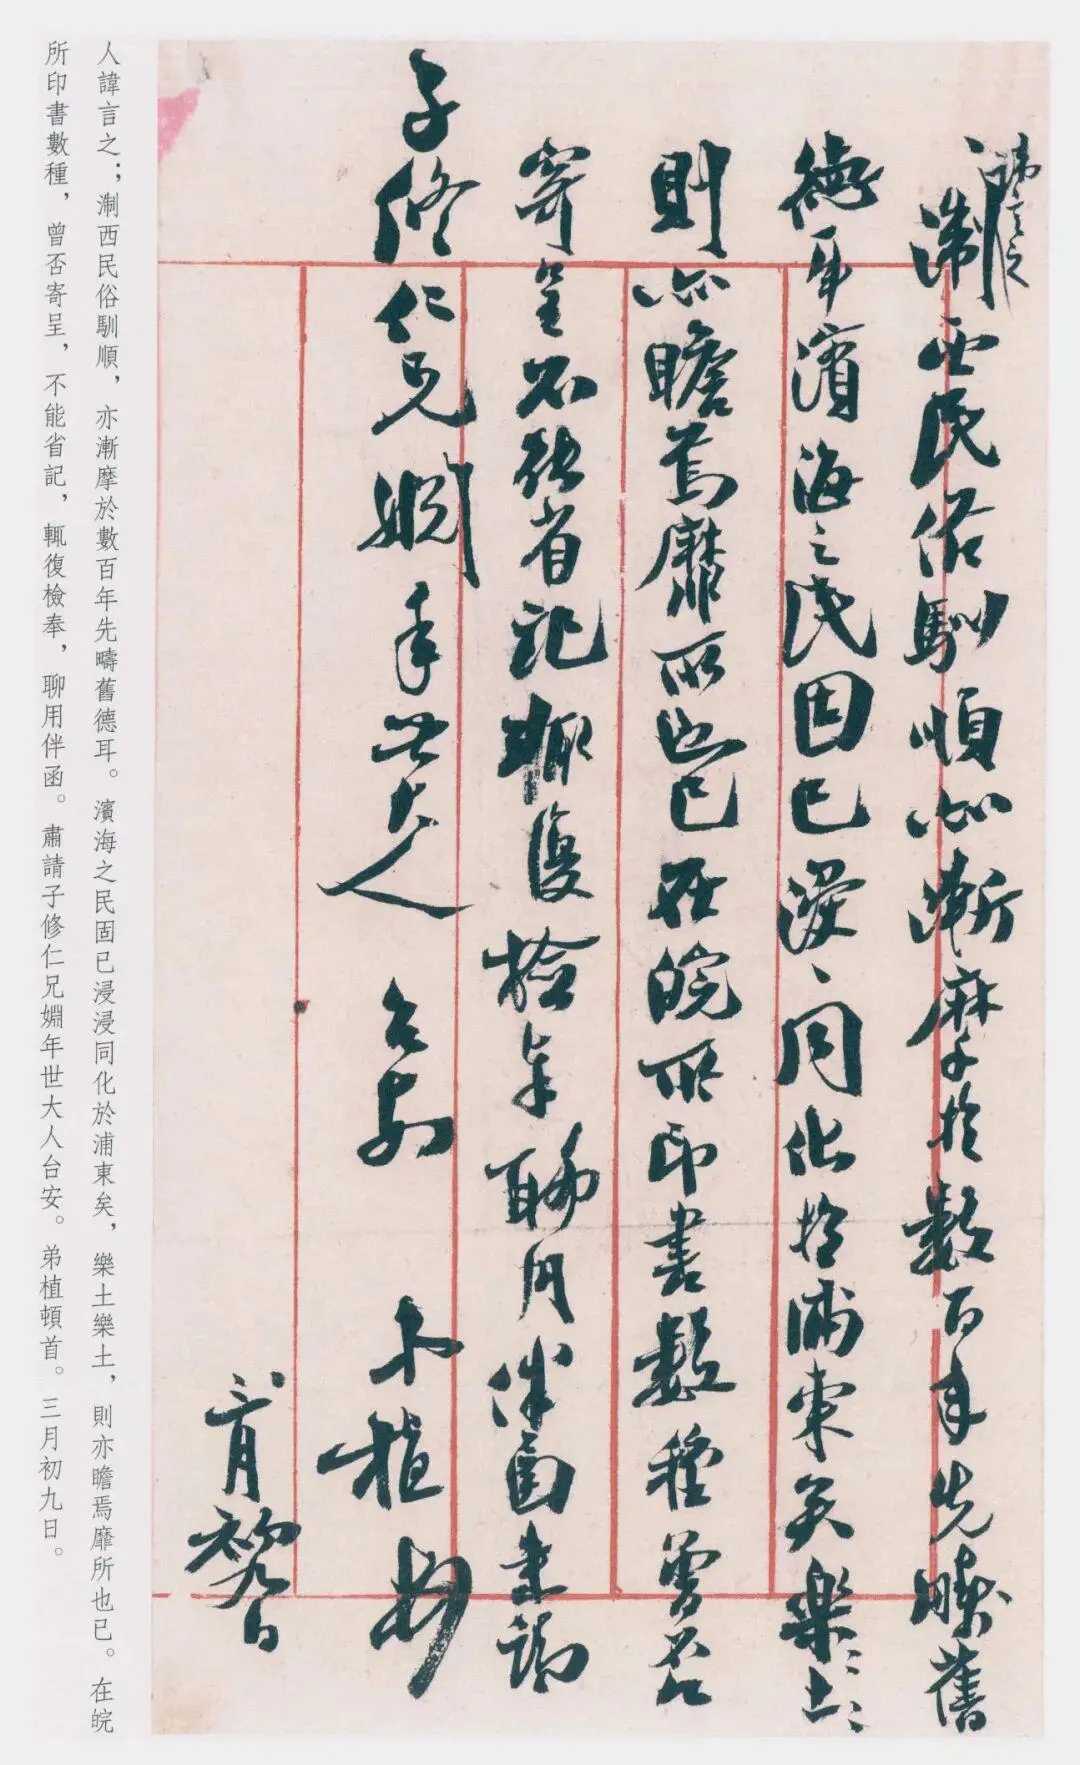 諱言之
淛西民俗馴順亦漸摩於數百年先疇舊
德耳濱海之民固已浸〻同化於浦東矣樂〻土〻
則亦瞻焉靡所也已在皖所印書數種曾否
寄呈不能省記輒復檢奉聊用伴函肅請
子修仁兄婣年世大人 台安 弟植頓首
三月初九日
人諱言之；淛西民俗馴順，亦漸摩於數百年先疇舊德耳。濱海之民固已浸浸同化於浦東矣，樂土樂土，則亦瞻焉靡所也已。在皖
所印書數種，曾否寄呈，不能省記，輒復檢奉，聊用伴函。肅請子修仁兄婣年世大人台安。弟植頓首。三月初九日。